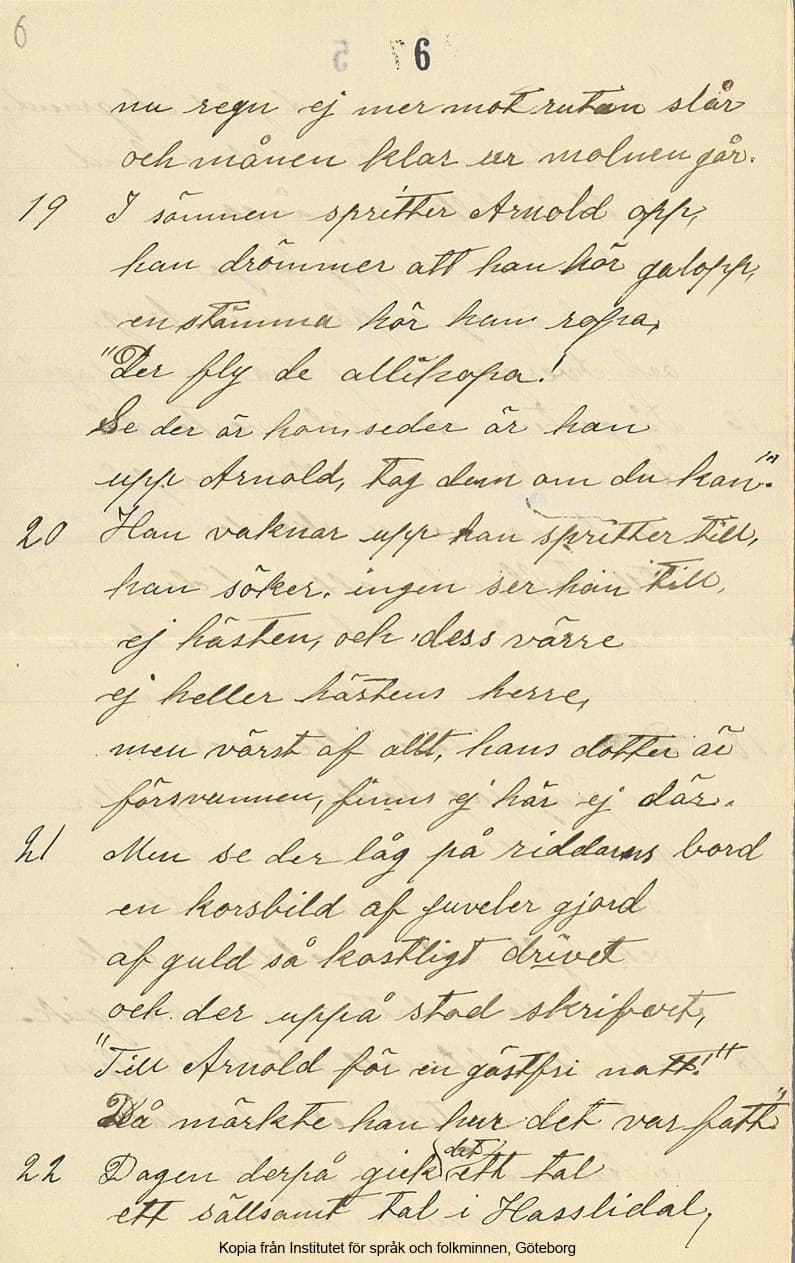 6
6
nu regn ej mer mot rutan slår
och månen klar ur molnen går.
19 I sömnen spritter Arnold opp,
han drömmer att han hör galopp,
en stämma hör han ropa,
"Der fly de allihopa!
Se der är hon, se der är han
upp Arnold, tag dem om du kan".
20 Han vaknar upp han spritter till,
han söker. ingen ser han till,
ej hästen, och dess värre
ej heller hästens herre,
men värst af allt, hans dotter är
försvunnen, finns ej här ej där.
21 Men se der låg på riddarns bord
en korsbild af juveler gjord
af guld så kostligt drivet
och der uppå stod skrifvet,
"Till Arnold för en gästfri natt!"
Då märkte han hur det var fatt"
22 Dagen derpå gick det ett tal
ett sällsamt tal i Hasslidal,
Kopia från Institutet för språk och folkminnen, Göteborg